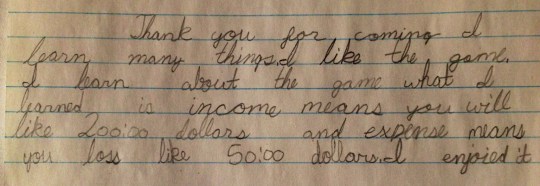 Thank you for coming I
learn many things.I like the game.
I learn about the game what I
learned is income means you will
like 200:00 dollars and expense means
you loss like 50:00 dollars.I enjoied it